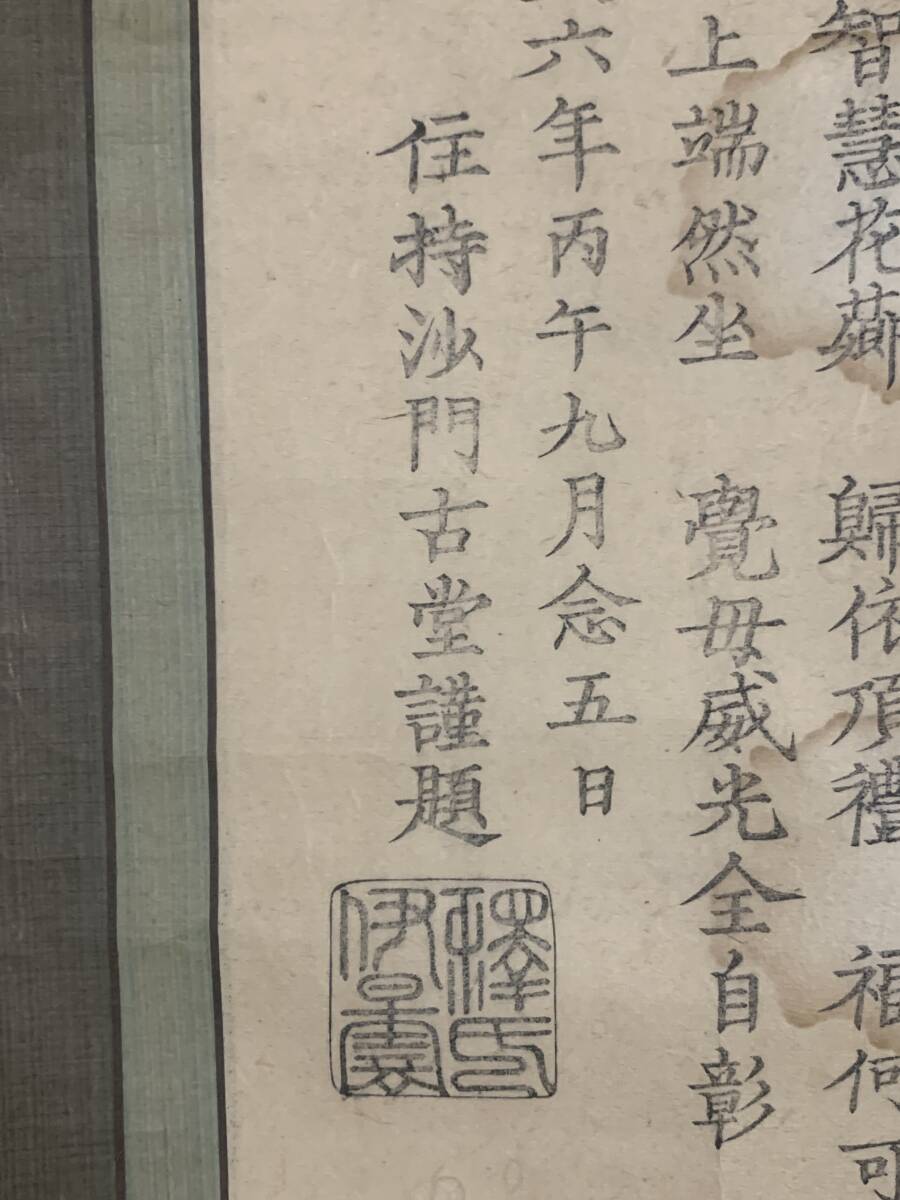 智慧花蘂 歸依頂禮 福何可
上端然坐 覺母威光全自彰
六年丙午九月念五日
住持沙門古堂謹題
釋氏